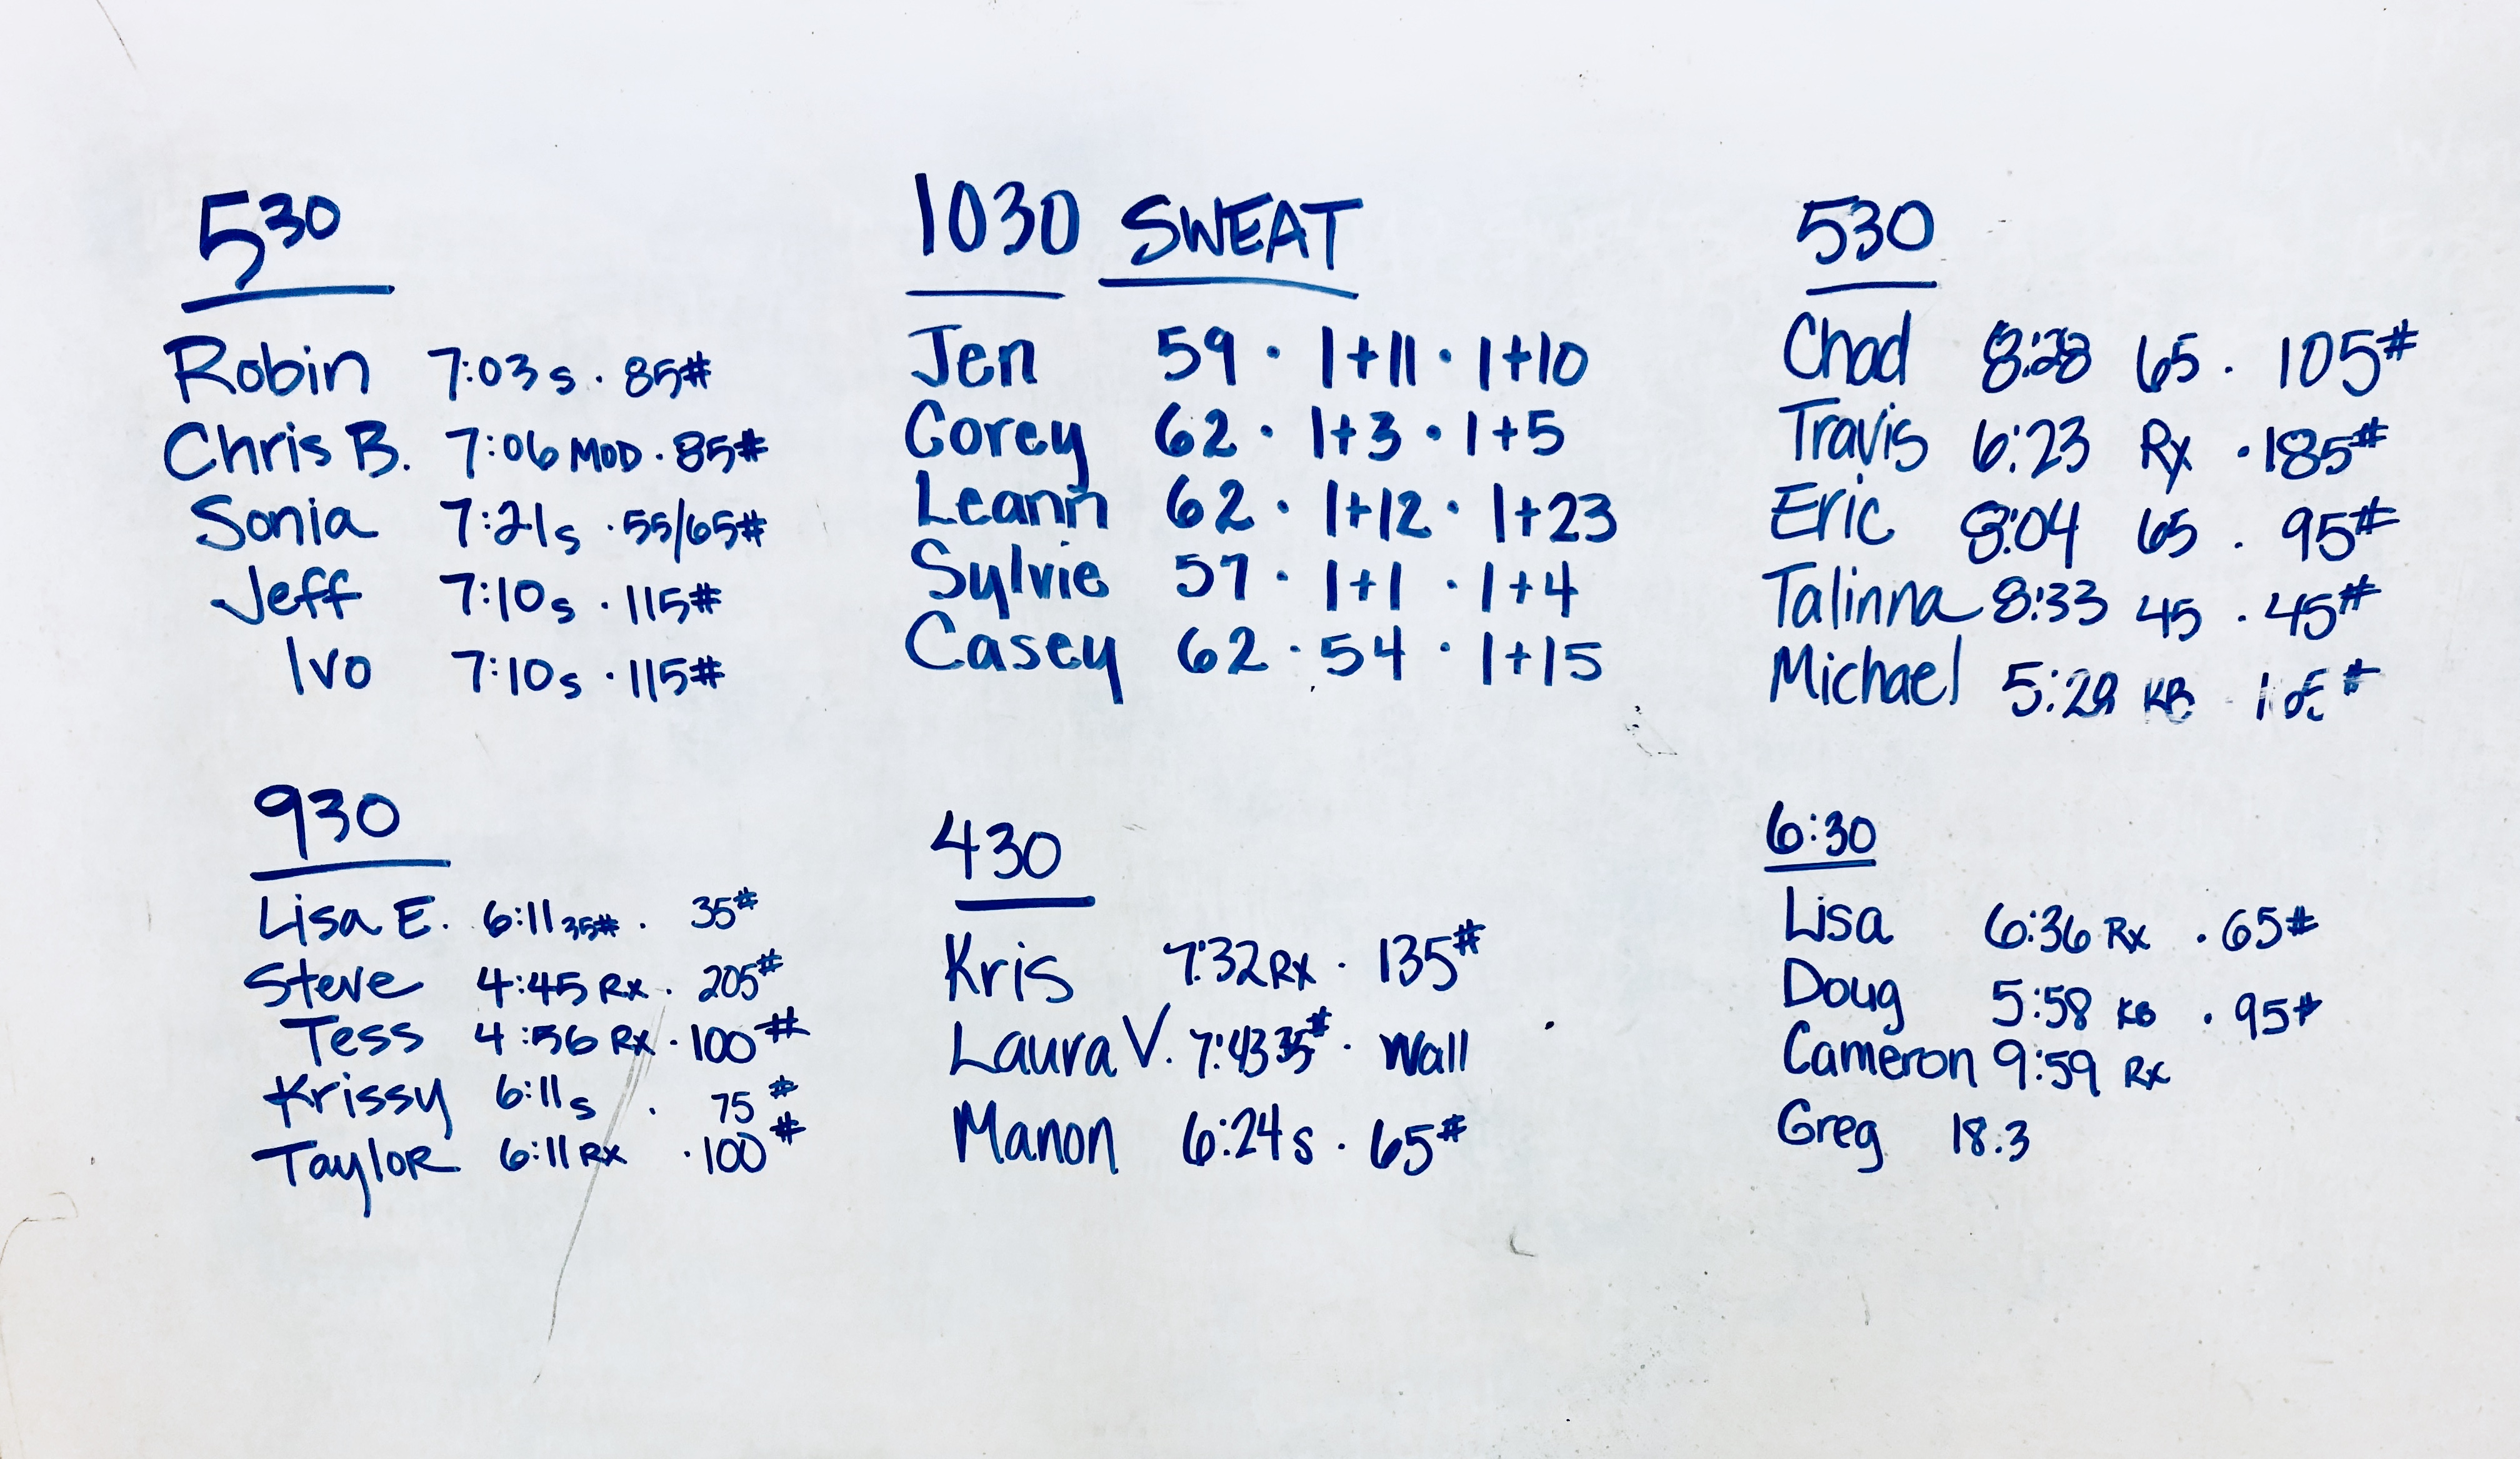 530
Robin 7:03 s · 85#
Chris B. 7:06 MOD · 85#
Sonia 7:21 s · 55/65#
Jeff 7:10 s · 115#
Ivo 7:10 s · 115#
930
Lisa E. 6:11 35# · 35#
Steve 4:45 Rx · 205#
Tess 4:56 Rx · 100#
Krissy 6:11 s · 75#
Taylor 6:11 Rx · 100#
1030 SWEAT
Jen 59 · 1+11 · 1+10
Corey 62 · 1+3 · 1+5
Leann 62 · 1+12 · 1+23
Sylvie 57 · 1+1 · 1+4
Casey 62 · 54 · 1+15
430
Kris 7:32 Rx · 135#
Laura V. 7:43 35# · Wall
Manon 6:24 s · 65#
530
Chad 8:28 65 · 105#
Travis 6:23 Rx · 185#
Eric 8:04 65 · 95#
Talinna 8:33 45 · 45#
Michael KB
6:30
Lisa 6:36 Rx · 65#
Doug 5:58 KB · 95#
Cameron 9:59 Rx
Greg 18.3